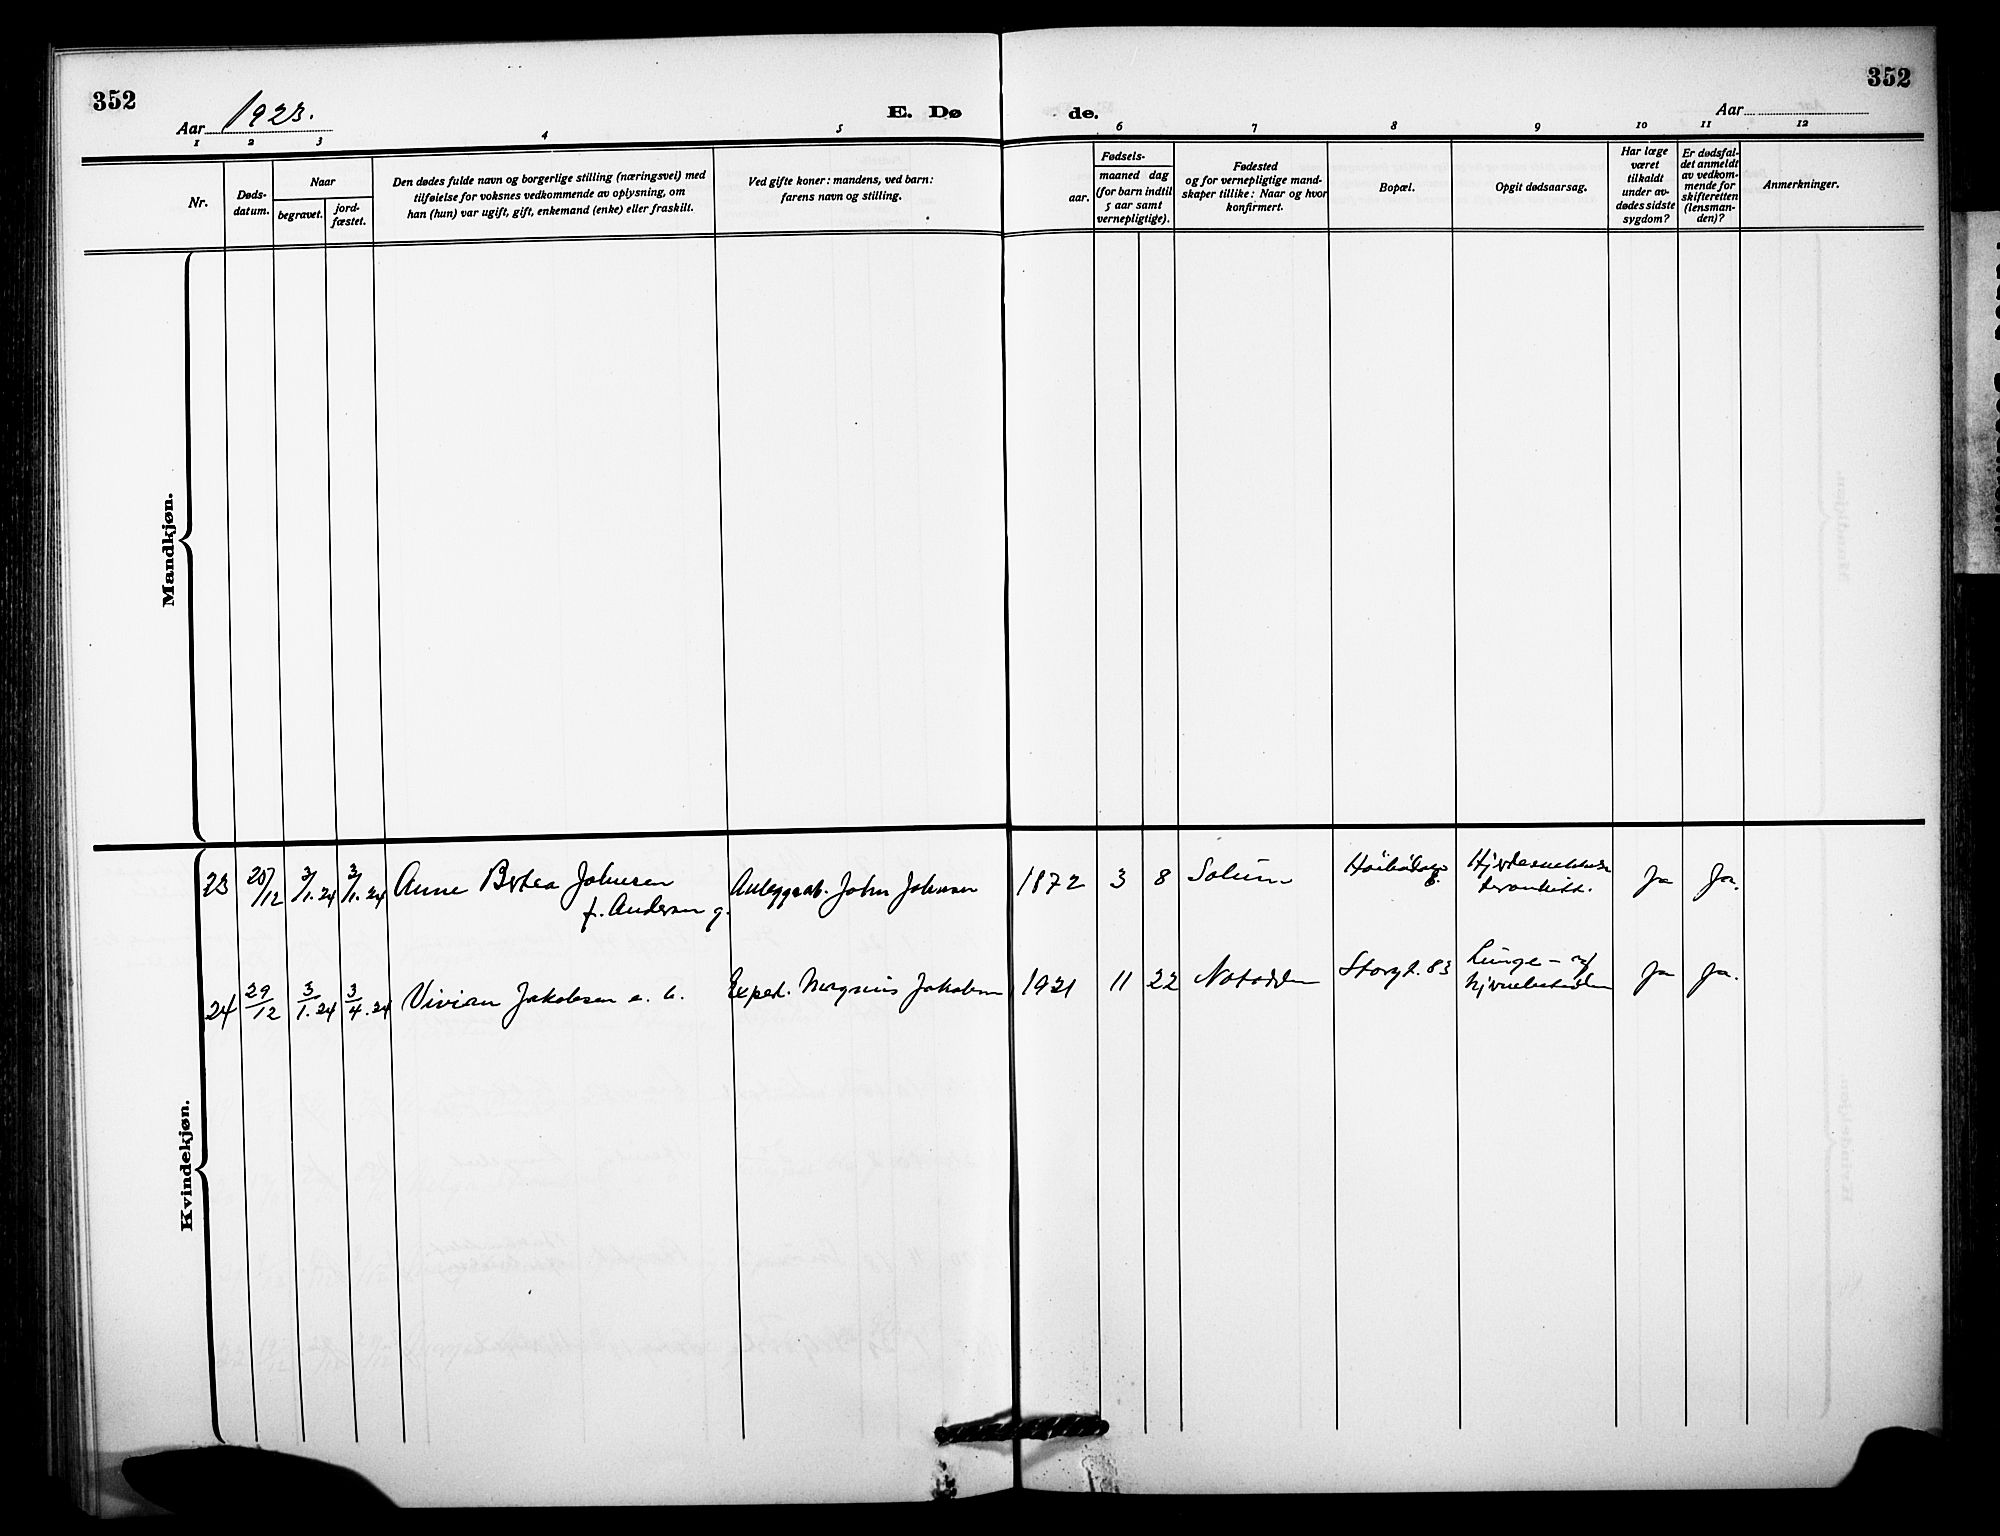 352
352
Aar 1923.
E. Dø
de.
Aar
1
2
3
4
5
6
7
8
9
10
11
12
Nr.
Døds-
datum.
Naar
begravet.
jord-
fæstet.
Den dødes fulde navn og borgerlige stilling (næringsvei) med
tilføielse for voksnes vedkommende av oplysning, om
han (hun) var ugift, gift, enkemand (enke) eller fraskilt.
Ved gifte koner: mandens, ved barn:
farens navn og stilling.
Fødsels-
aar.
maaned dag
(for barn indtil
5 aar samt
vernepligtige).
Fødested
og for vernepligtige mand-
skaper tillike: Naar og hvor
konfirmert.
Bopæl.
Opgit dødsaarsag.
Har læge
været
tilkaldt
under av-
dødes sidste
sygdom?
Er dødsfal-
det anmeldt
av vedkom-
mende for
skifteretten
(lensman-
den)?
Anmerkninger.
Mandkjøn.
Kvindekjøn.
23 3/1.24 3/1.24 Anne Johnsen
f. Andersen g.
John Johnsen 1872 3 8 Solum Ja Ja.
24 29/12 3/1.24 3/4.24 Vivian Jakobsen
Exped. Magnus Jakobsen 1921 11 22 Notodden Storgt. 83 Lunge-
Ja Ja.